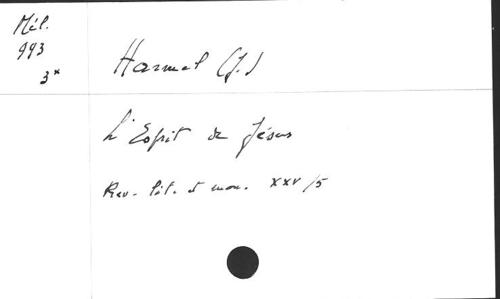 Mél.
993
3*
Harmel (J.)
L'Esprit de Jésus
Rev. lit. et mon. XXV/5